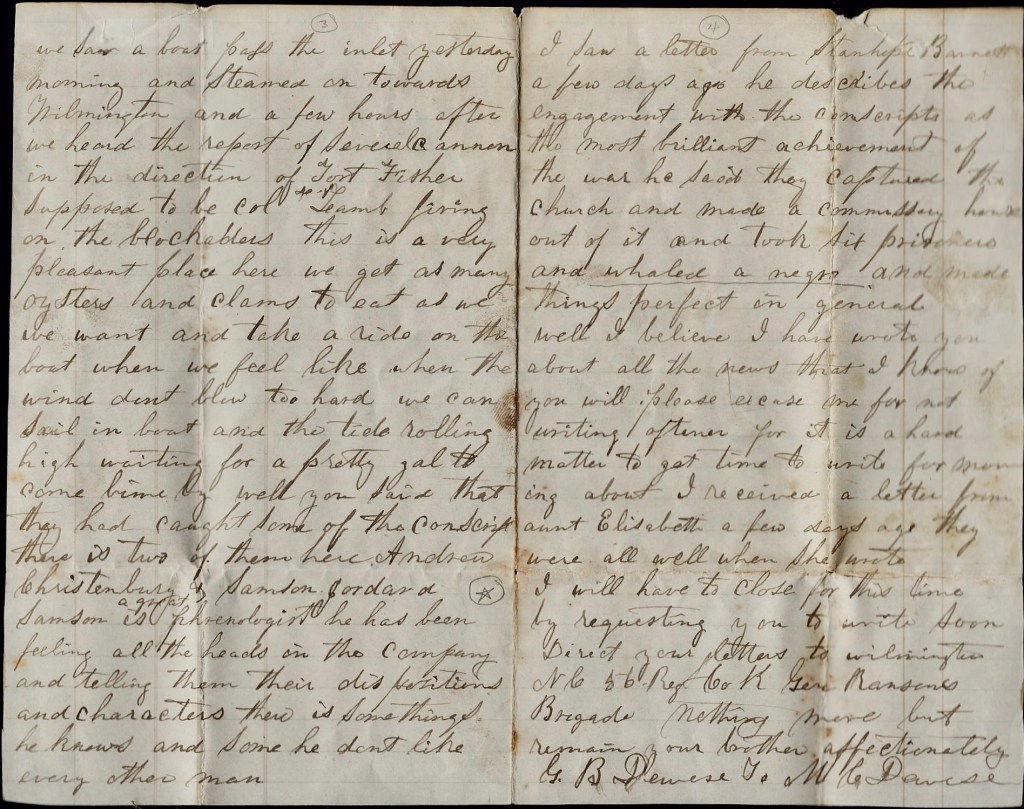 3
we saw a boat pass the inlet yesterday
morning and steamed on towards
Wilmington and a few hours after
we heard the report of several cannon
in the direction of Fort Fisher
supposed to be col Lamb firing
on the blockaders this is a very
pleasant place here we get as many
oysters and clams to eat as we
we want and take a ride on the
boat when we feel like when the
wind dont blow too hard we can
sail in boat and the tide rolling
high waiting for a pretty gal to
come bime by well you said that
they had caught some of the conscript
there is two of them here Andrew
Christenbury & Samson
Samson is a great phrenologist he has been
feeling all the heads in the company
and telling them their dispositions
and characters there is somethings
he knows and some he dont like
every other man
4
I saw a letter from Stanhope Barnett
a few days ago he describes the
engagement with the conscripts as
the most brilliant achievement of
the war he said they captured the
church and made a commissary house
out of it and took six prisoners
and whaled a negro and made
things perfect in general
well I believe I have wrote you
about all the news that I know of
you will please excuse me for not
writing oftener for it is a hard
matter to get time to write for mov
ing about I received a letter from
aunt Elisabeth a few days ago they
were all well when she wrote
I will have to close for this time
by requesting you to write soon
Direct your letters to wilmington
NC 56 Reg Co K Gen Ransoms
Brigade Nothing more but
remain your brother affectionately
G. B Dewese To M C Dewese